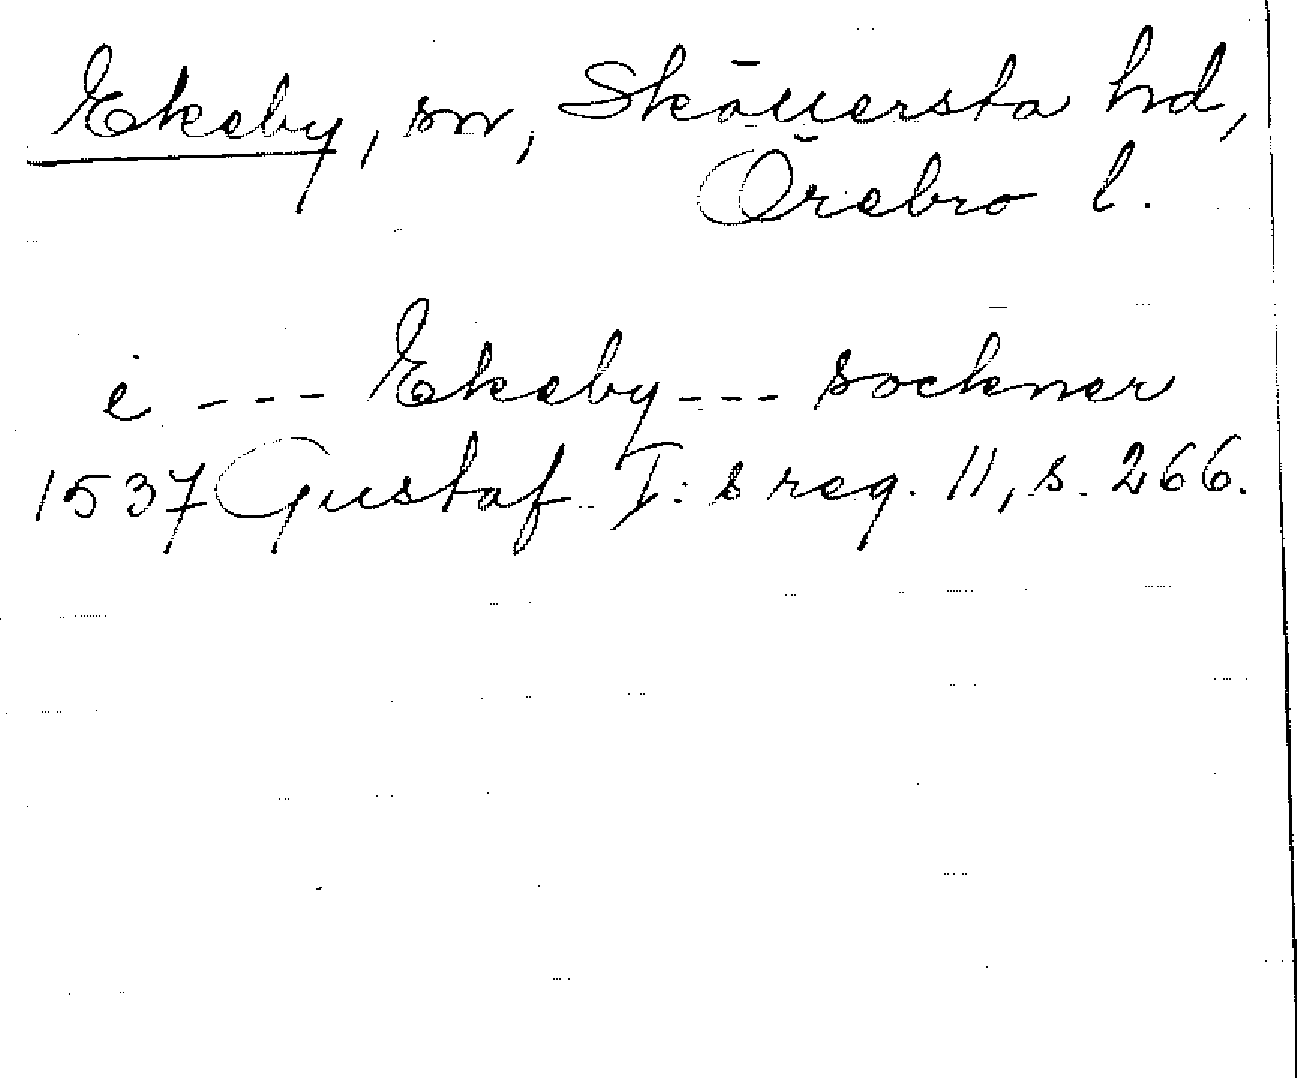 Ekeby, sn, Sköllersta hd,
Örebro l.
i --- Ekeby --- sockner
1537 Gustaf I:s reg. 11, s. 266.